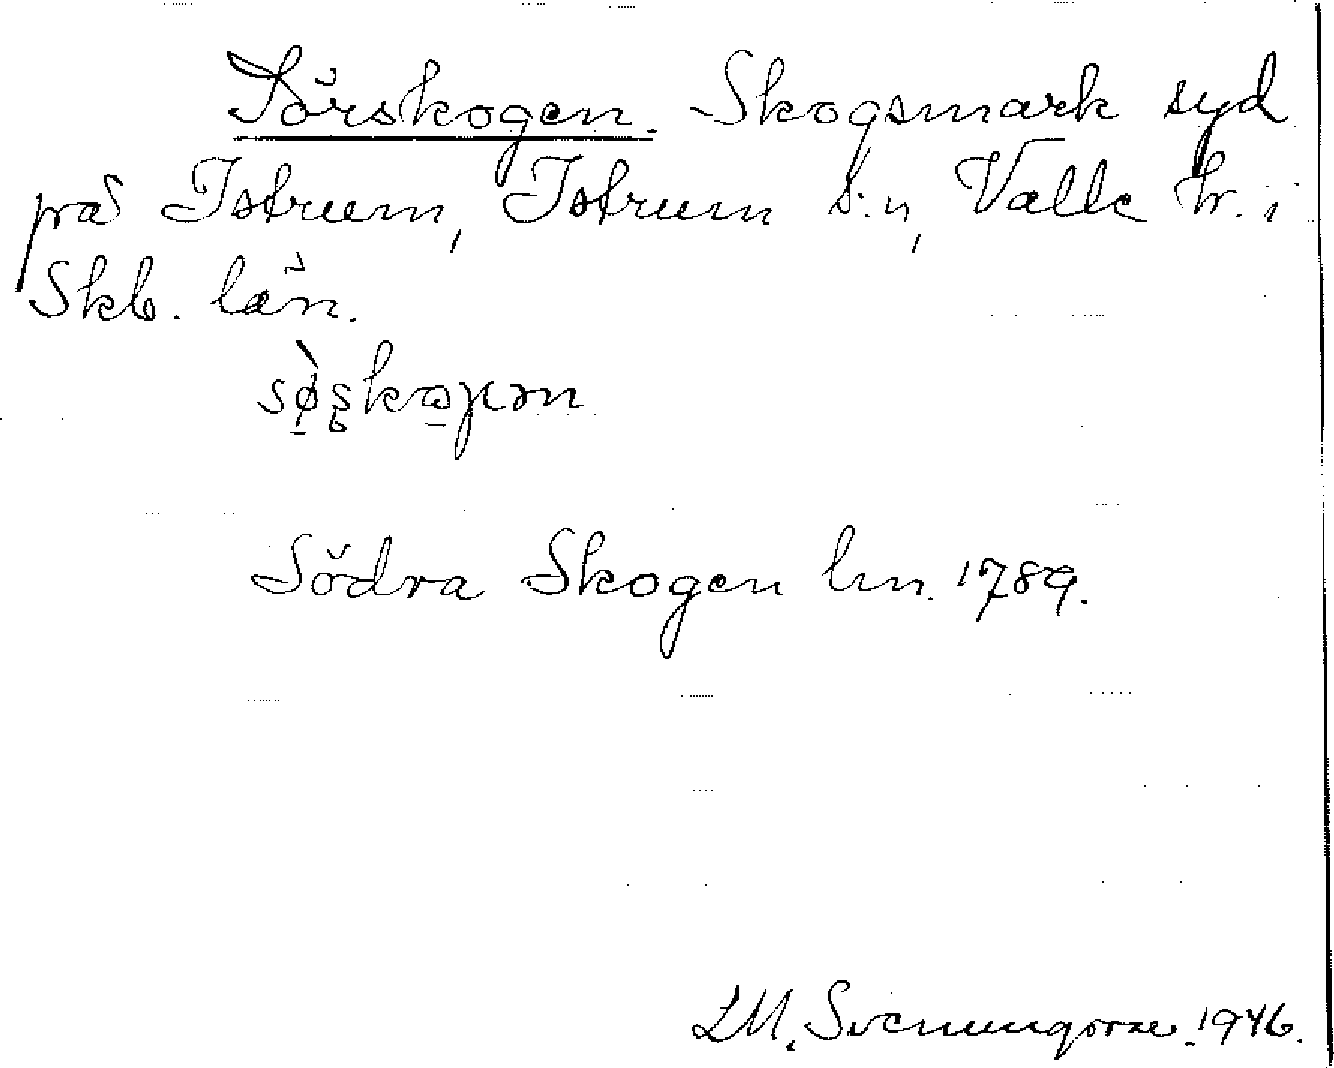 Sörskogen. Skogsmark syd
på Istrum, Istrum s:n, Valle hr. i
Skb. län.
Södra Skogen hn. 1789.
L.M. Svenungsson 1946.